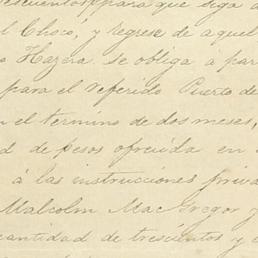 descuento para que siga a
l Choco, y regrese de aquel
Hazera se obliga a par
para el referido Puerto de
n el termino de dos meses,
d de pesos ofrecida en
á las instrucciones priva
Malcolm MacGregor y
cantidad de trescientos y